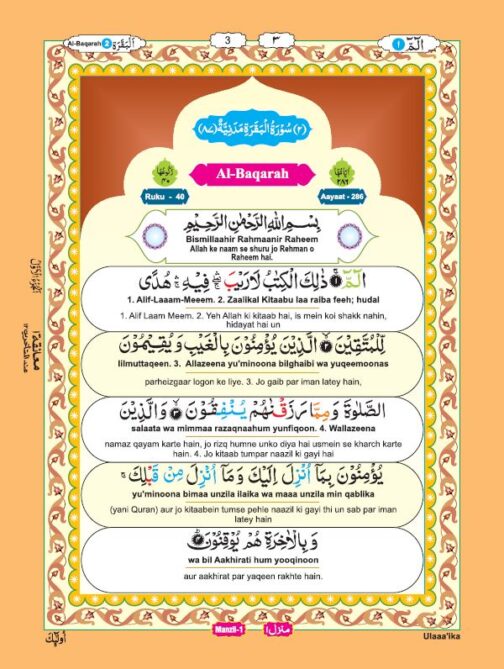 Al-Baqarah 2 اَلْبَقَرَة
3
٣
الٓمّٓ ١
(٢) سُوْرَةُ الْبَقَرَةِ مَدَنِيَّةٌ (٨٧)
رُكُوْعَاتُهَا ٤٠
Al-Baqarah
اٰيَاتُهَا ٢٨٦
Ruku - 40
Aayaat - 286
بِسْمِ اللّٰهِ الرَّحْمٰنِ الرَّحِيْمِ
Bismillaahir Rahmaanir Raheem
Allah ke naam se shuru jo Rehman o
Raheem hai.
الٓمّٓ ۚ ١ ذٰلِكَ الْكِتٰبُ لَا رَيْبَ ۛ فِيْهِ ۛ هُدًى
1. Alif-Laaam-Meeem. 2. Zaalikal Kitaabu laa raiba feeh; hudal
1. Alif Laam Meem. 2. Yeh Allah ki kitaab hai, is mein koi shakk nahin,
hidayat hai un
لِّلْمُتَّقِيْنَ ٢ الَّذِيْنَ يُؤْمِنُوْنَ بِالْغَيْبِ وَيُقِيْمُوْنَ
lilmuttaqeen. 3. Allazeena yu'minoona bilghaibi wa yuqeemoonas
parheizgaar logon ke liye. 3. Jo gaib par iman latey hain,
الصَّلٰوةَ وَمِمَّا رَزَقْنٰهُمْ يُنْفِقُوْنَ ٣ وَالَّذِيْنَ
salaata wa mimmaa razaqnaahum yunfiqoon. 4. Wallazeena
namaz qayam karte hain, jo rizq humne unko diya hai usmein se kharch karte
hain. 4. Jo kitaab tumpar naazil ki gayi hai
يُؤْمِنُوْنَ بِمَآ اُنْزِلَ اِلَيْكَ وَمَآ اُنْزِلَ مِنْ قَبْلِكَ ۚ
yu'minoona bimaa unzila ilaika wa maaa unzila min qablika
(yani Quran) aur jo kitaabein tumse pehle naazil ki gayi thi un sab par iman
latey hain
وَبِالْاٰخِرَةِ هُمْ يُوْقِنُوْنَ ٤
wa bil Aakhirati hum yooqinoon
aur aakhirat par yaqeen rakhte hain.
اَلْجُزْءُ الْاَوَّلُ
Manzil-1
مَنْزِل ١
اُولٰٓئِكَ
Ulaaa'ika